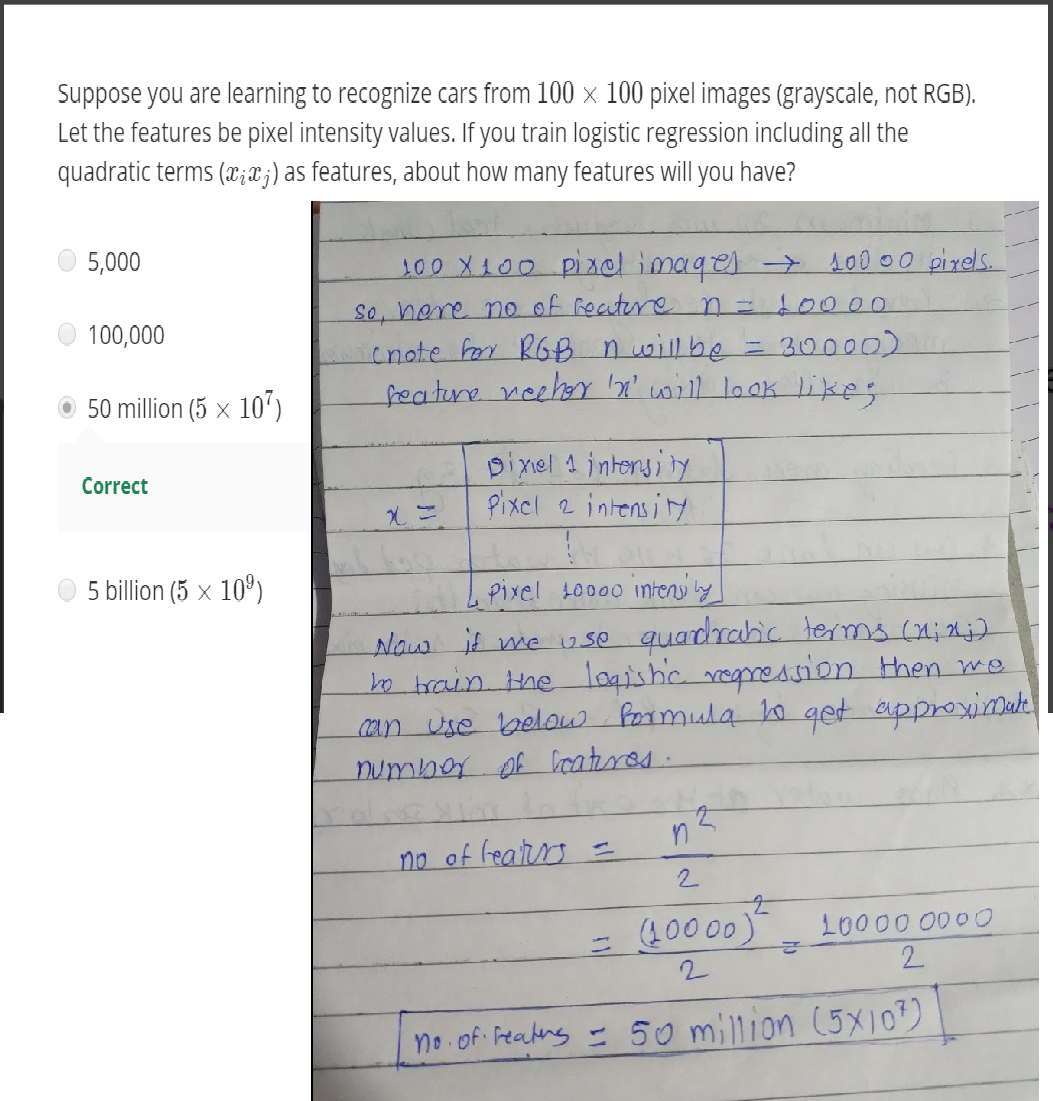 Suppose you are learning to recognize cars from 100 × 100 pixel images (grayscale, not RGB).
Let the features be pixel intensity values. If you train logistic regression including all the
quadratic terms (xᵢxⱼ) as features, about how many features will you have?
5,000
100,000
50 million (5 × 10⁷)
Correct
5 billion (5 × 10⁹)
100 X 100 pixel images → 10000 pixels.
so, here no of feature n = 10000
(note for RGB n will be = 30000)
feature vector 'x' will look like;
Pixel 1 intensity
x = Pixel 2 intensity
⋮
Pixel 10000 intensity
Now if we use quadratic terms (xᵢxⱼ)
to train the logistic regression then we
can use below formula to get approximate
number of features.
no of featurs = n²/2
= (10000)²/2 = 100000000/2
no. of. featurs = 50 million (5X10⁷)